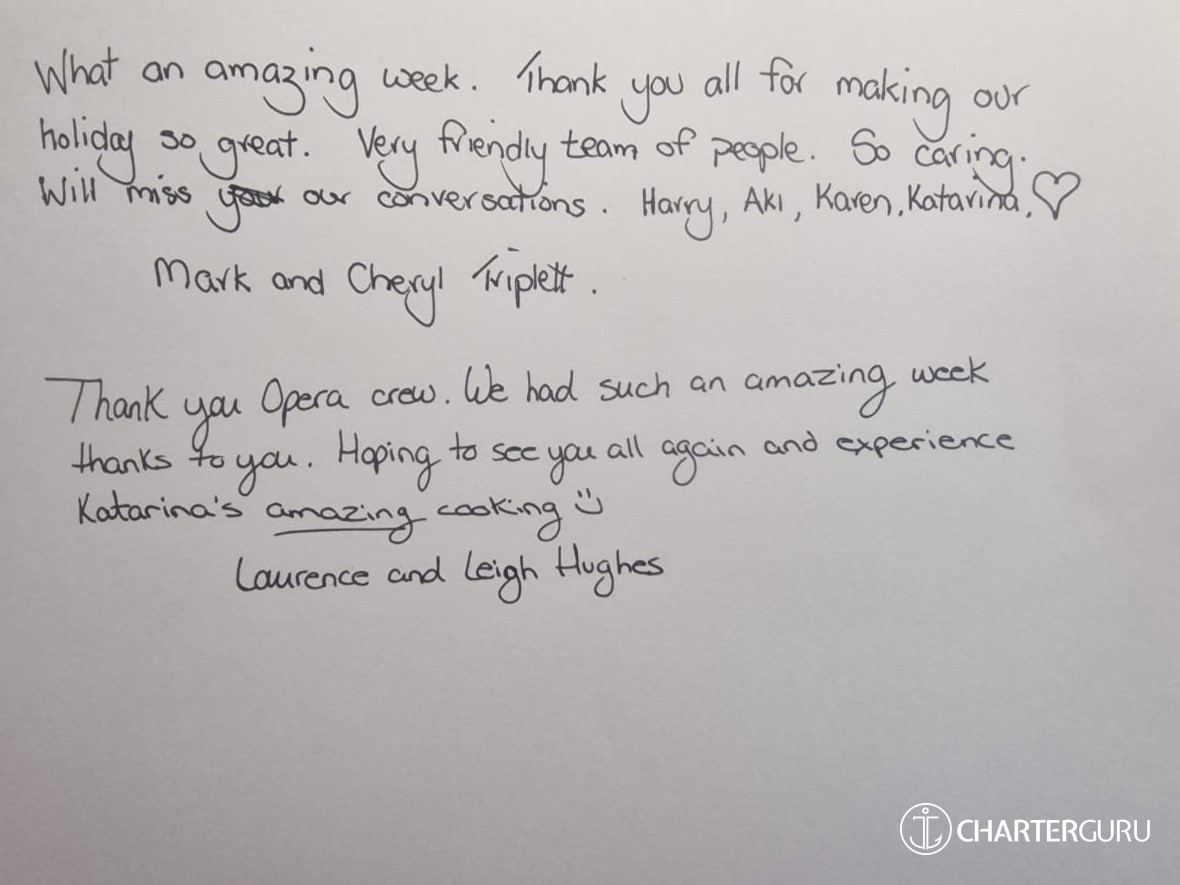 What an amazing week. Thank you all for making our
holiday so great. Very friendly team of people. So caring.
Will miss our conversations. Harry, Aki, Karen, Katarina, ♡
Mark and Cheryl Triplett.
Thank you Opera crew. We had such an amazing week
thanks to you. Hoping to see you all again and experience
Katarina's amazing cooking :)
Laurence and Leigh Hughes
CHARTERGURU